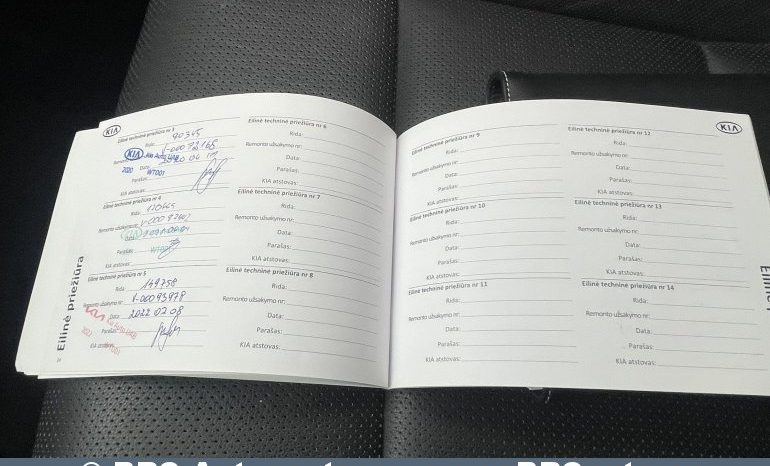 KIA
Eilinė techninė priežiūra nr 3
Rida: 90345
Remonto
KIA
2020 WT001
Parašas:
KIA atstovas:
Eilinė techninė priežiūra nr 4
Rida:
Remonto užsakymo nr:
Parašas:
KIA atstovas:
Eilinė techninė priežiūra nr 5
Rida: 149758
Remonto užsakymo nr: 1-00093978
Data: 2022 02 08
Parašas:
KIA atstovas:
Eilinė priežiūra
Eilinė techninė priežiūra nr 6
Rida:
Remonto užsakymo nr:
Data:
Parašas:
KIA atstovas:
Eilinė techninė priežiūra nr 7
Rida:
Remonto užsakymo nr:
Data:
Parašas:
KIA atstovas:
Eilinė techninė priežiūra nr 8
Rida:
Remonto užsakymo nr:
Data:
Parašas:
KIA atstovas:
Eilinė techninė priežiūra nr 9
Rida:
Remonto užsakymo nr:
Data:
Parašas:
KIA atstovas:
Eilinė techninė priežiūra nr 10
Rida:
Remonto užsakymo nr:
Data:
Parašas:
KIA atstovas:
Eilinė techninė priežiūra nr 11
Rida:
Remonto užsakymo nr:
Data:
Parašas:
KIA atstovas:
Eilinė techninė priežiūra nr 12
KIA
Rida:
Remonto užsakymo nr:
Data:
Parašas:
KIA atstovas:
Eilinė techninė priežiūra nr 13
Rida:
Remonto užsakymo nr:
Data:
Parašas:
KIA atstovas:
Eilinė techninė priežiūra nr 14
Rida:
Remonto užsakymo nr:
Data:
Parašas:
KIA atstovas: